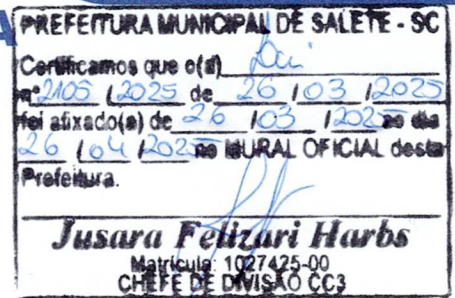 PREFEITURA MUNICIPAL DE SALETE - SC
Certificamos que o(a) Lei
nº 2105 / 2025 de 26 / 03 / 2025
foi afixado(a) de 26 / 03 / 2025 ao dia
26 / 04 / 2025 no MURAL OFICIAL desta
Prefeitura.
Jusara Felizari Harbs
Matrícula: 1027425-00
CHEFE DE DIVISÃO CC3